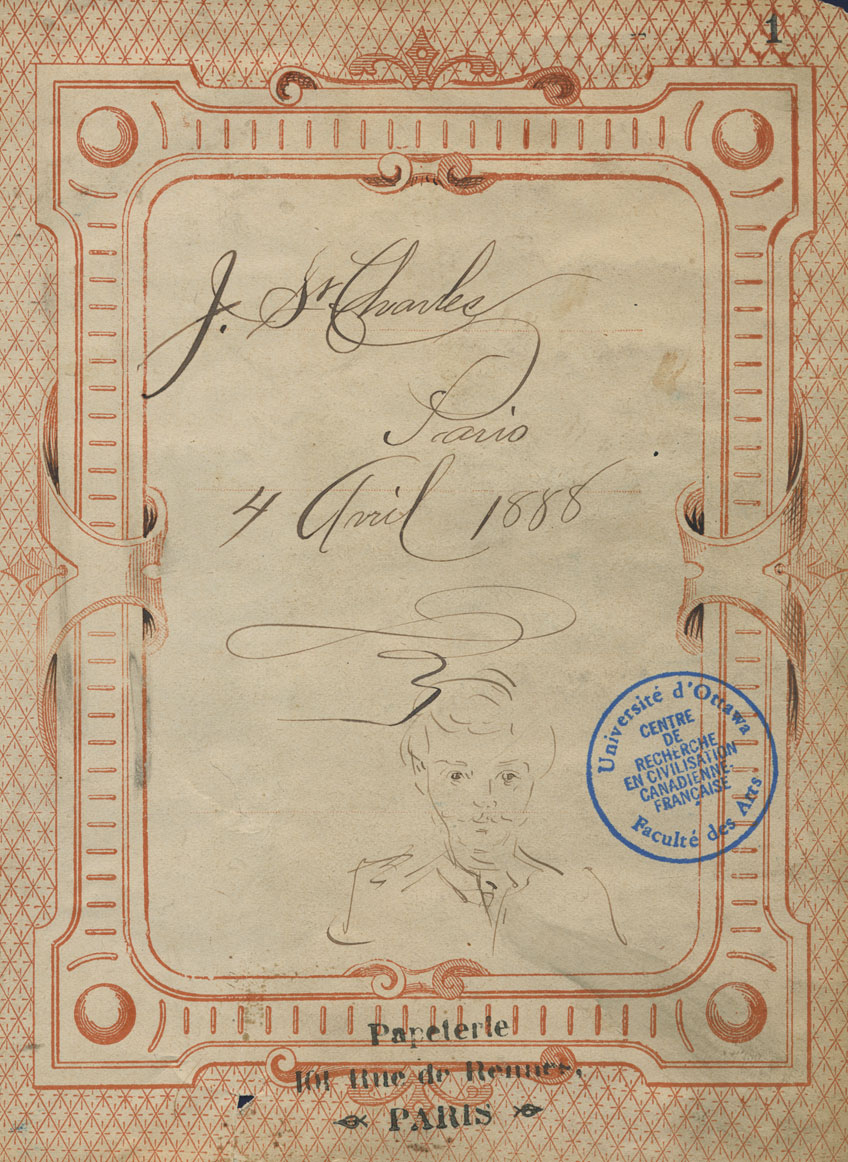 1
J. St. Charles
Paris
4 Avril 1888
Université d'Ottawa
CENTRE
DE
RECHERCHE
EN CIVILISATION
CANADIENNE-
FRANÇAISE
Faculté des Arts
Papeterie
101 Rue de Rennes,
PARIS